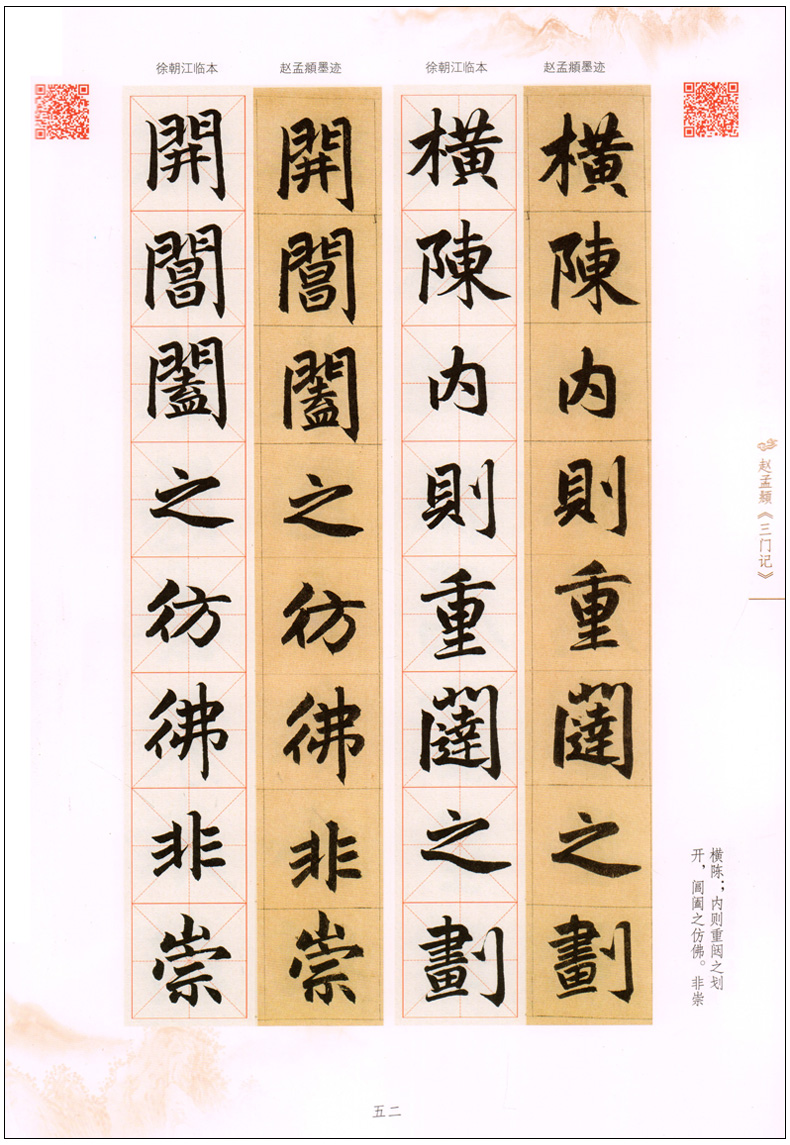 赵孟頫墨迹
橫陳内則重闥之劃
徐朝江临本
橫陳内則重闥之劃
赵孟頫墨迹
開閶闔之彷彿非崇
徐朝江临本
開閶闔之彷彿非崇
赵孟頫《三门记》
横陈；内则重闼之划
开，阊阖之仿佛。非崇
五二